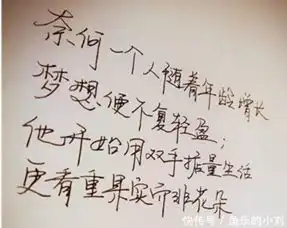 奈何一个人随着年龄增长
梦想便不复轻盈；
他开始用双手掂量生活
更看重果实而非花朵
快传号 / 鱼乐的小刘